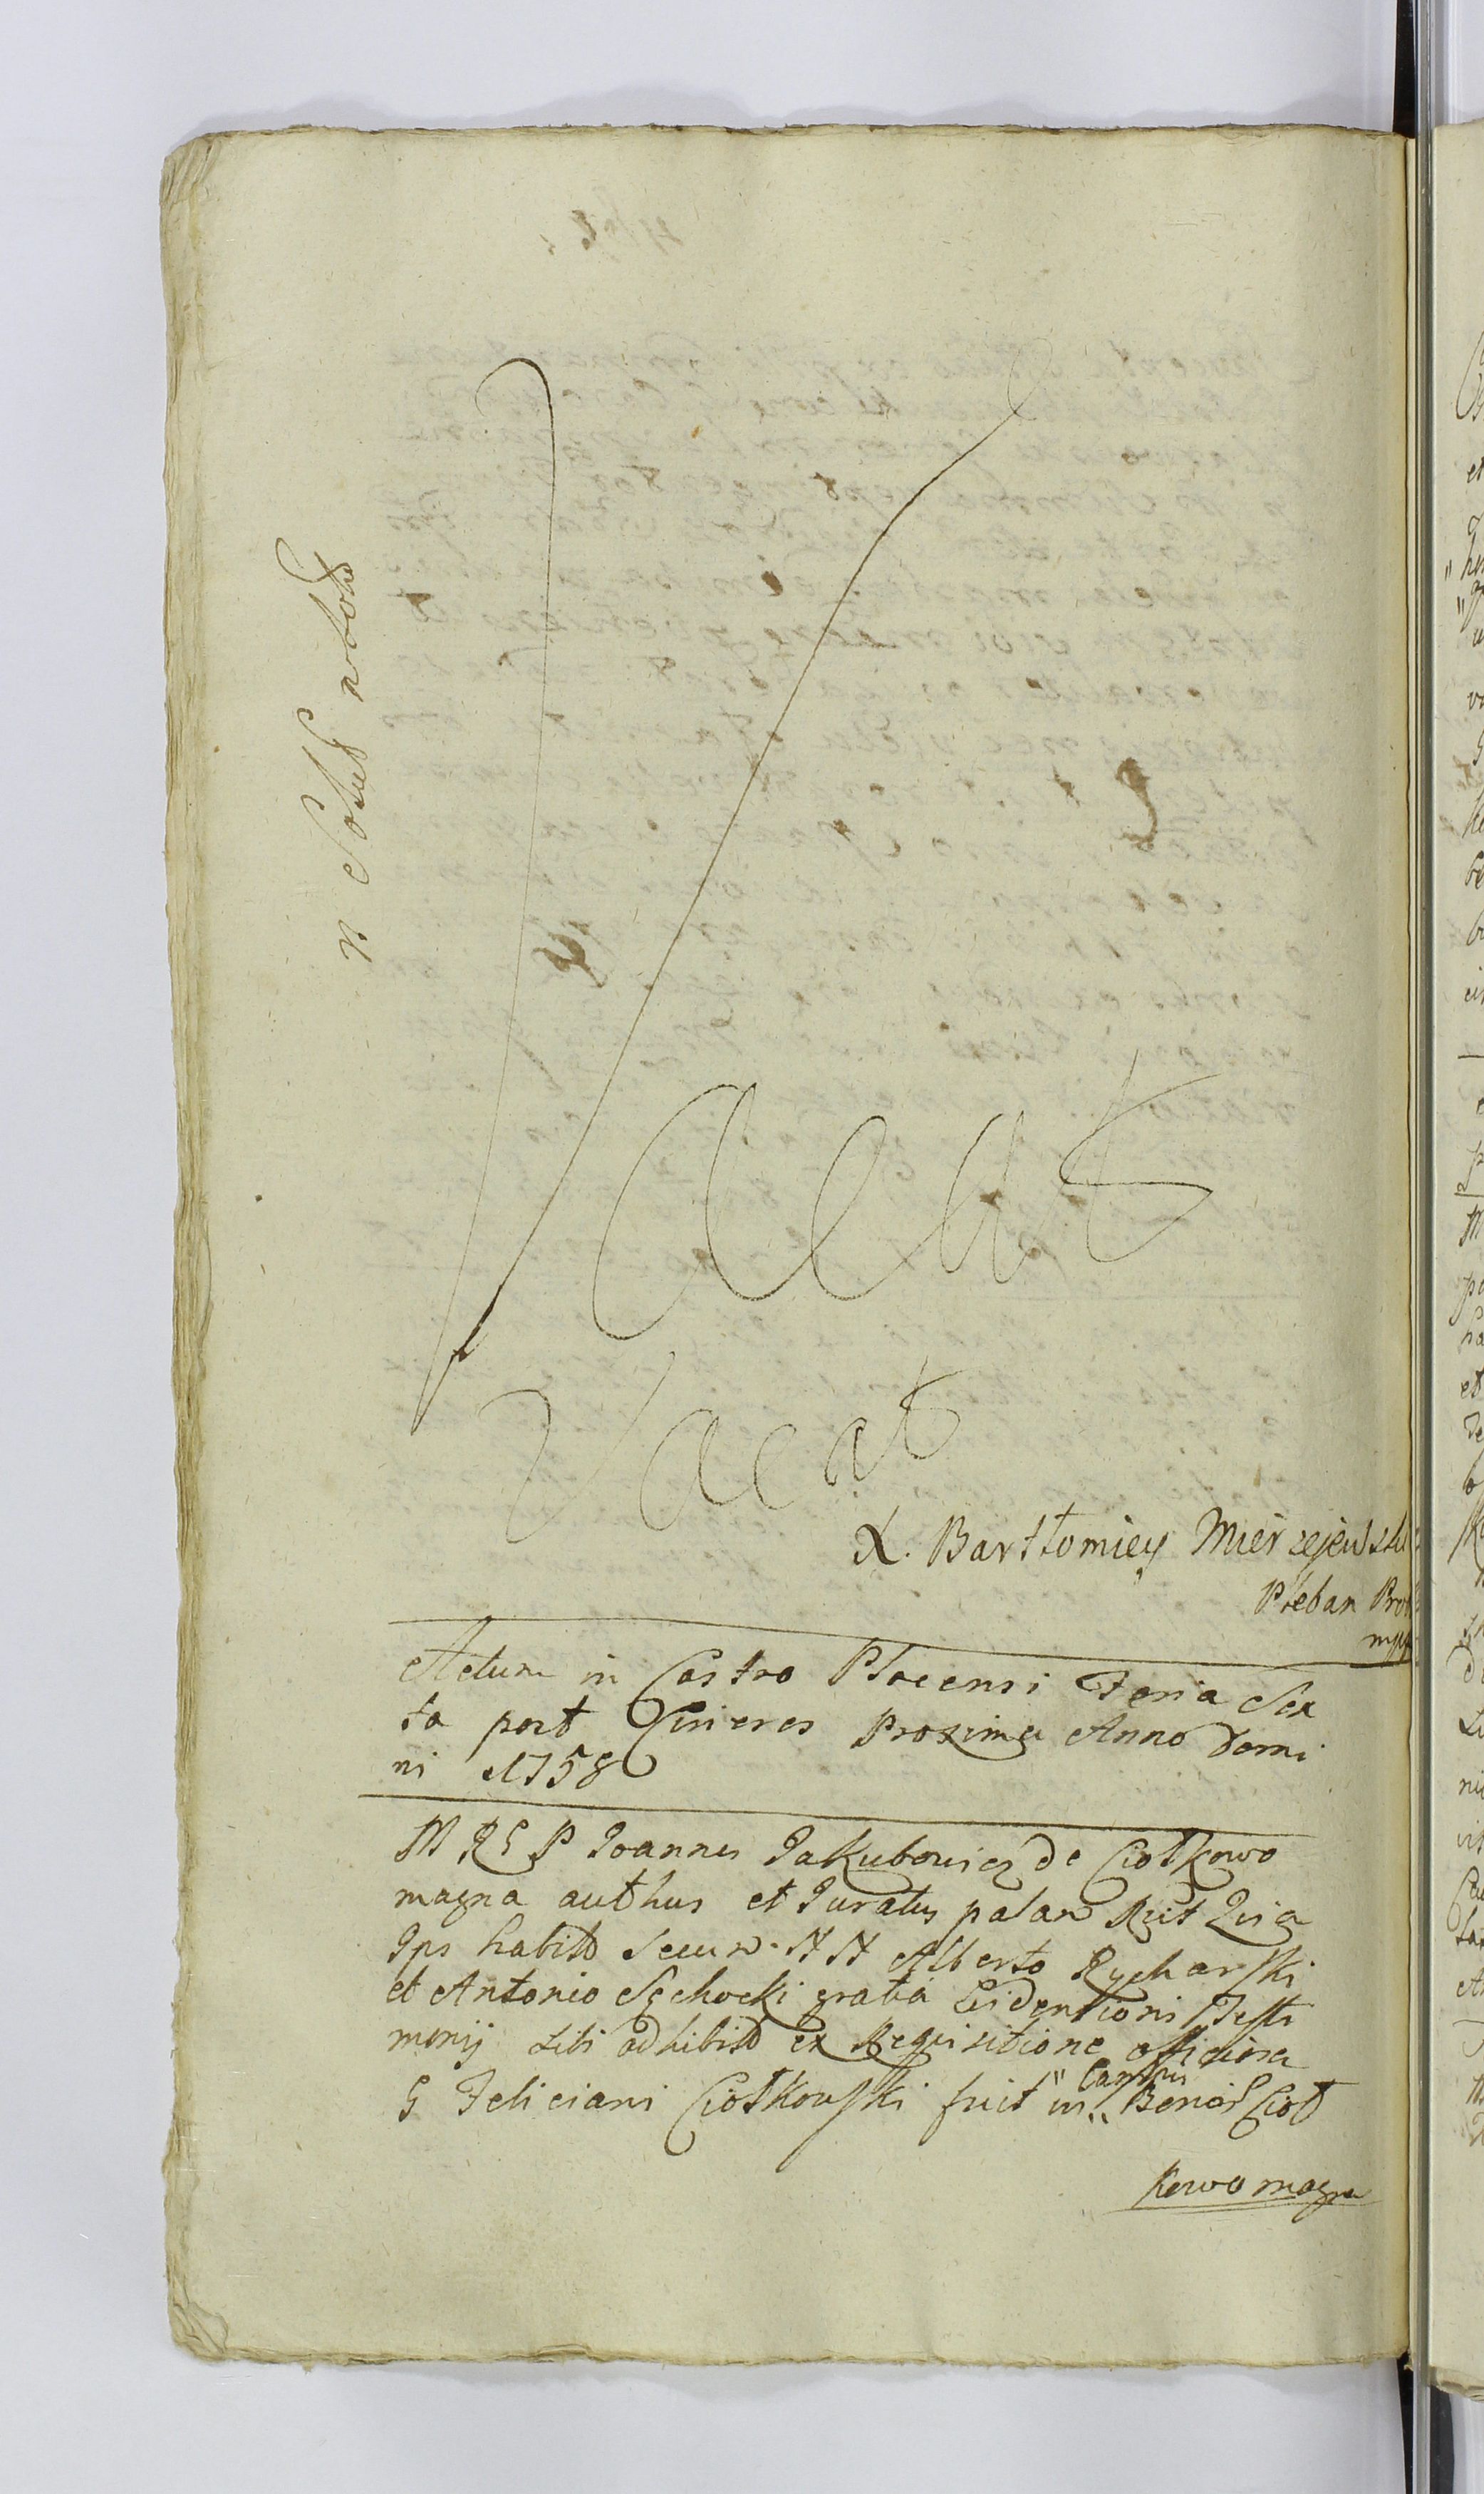 n Solut nobis
Vacat
Vacat
X. Bartłomiey Mierzejewski
Pleban Pro
mpp
Actum in Castro Plocensi Feria Sex
ta post Cineres Proxima Anno Domi
ni 1758
M R G P Joannes Jakubowicz de Ciołkowo
magna authus et Juratus palam Rcit Quia
Ips habito secum N N Alberto Rycharski
et Antonio Sochocki gratia Evidentioris Testi
monij sibi adhibito ex Requisitione officiosa
G Feliciani Ciołkowski fuit in " Campis
" Bonor Cioł
kowo magna